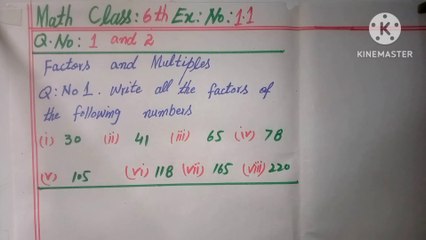 Math Class: 6th Ex: No: 1.1
Q.No: 1 and 2
KINEMASTER
Factors and Multiples
Q: No 1. Write all the factors of
the following numbers
(i) 30 (ii) 41 (iii) 65 (iv) 78
(v) 105 (vi) 118 (vii) 165 (viii) 220